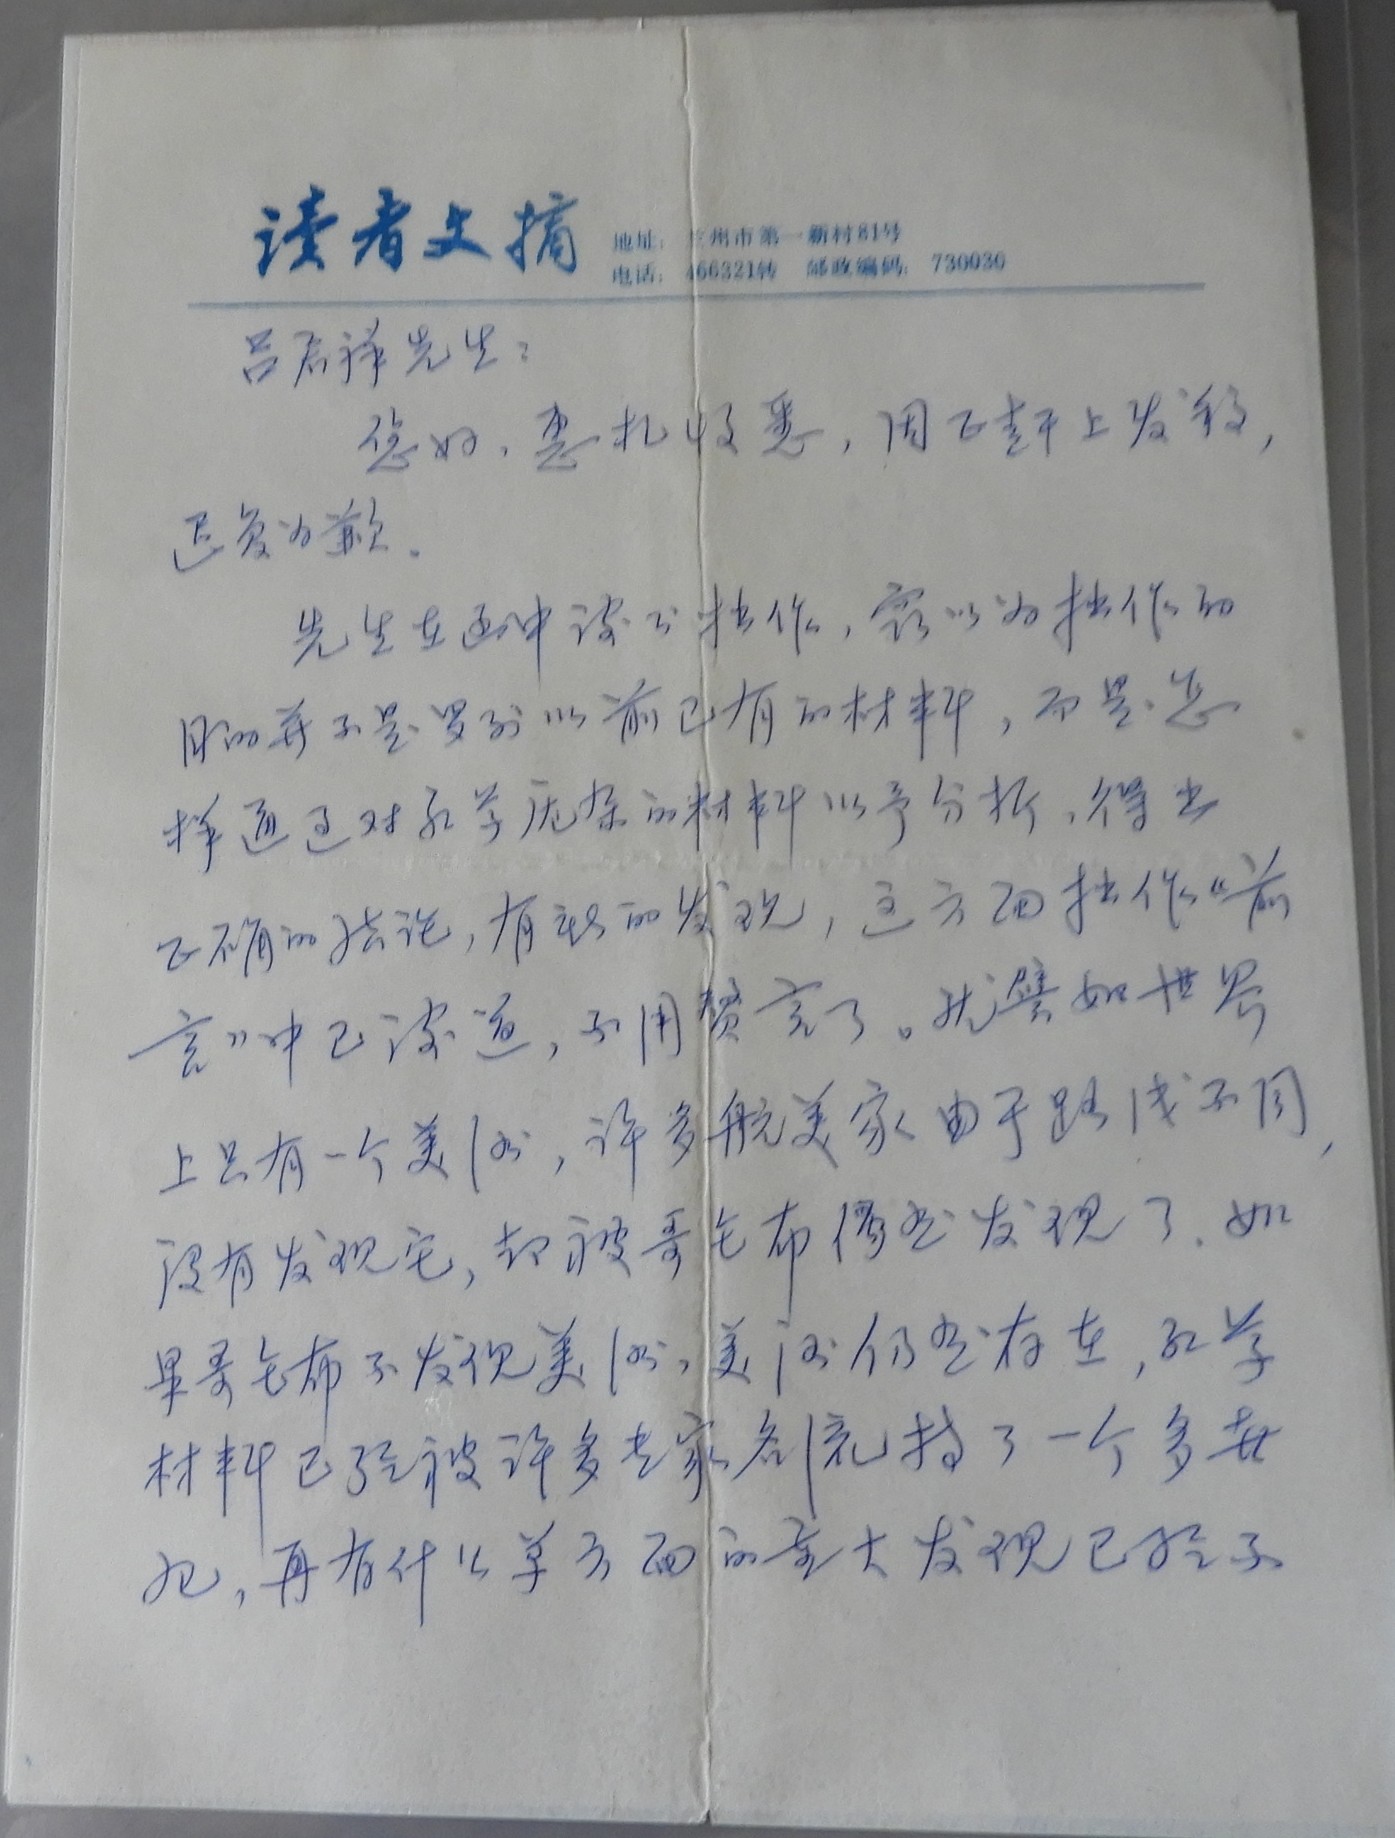 读者文摘
地址：兰州市第一新村81号
电话：466321转 邮政编码：730030
吕君祥先生：
您好，惠札收悉，因正赶上发稿，
迟复为歉。
先生在函中谈了拙作，窃以为拙作的
目的并不是罗列以前已有的材料，而是怎
样通过对红学庞杂的材料以予分析，得出
正确的结论，有新的发现，这方面拙作“前
言”中已谈过，不用赘言了。就譬如世界
上只有一个美洲，许多航美家由于路线不同，
没有发现它，却被哥仑布偶然发现了，如
果哥仑布不发现美洲，美洲仍然存在，红学
材料已经被许多专家名流搞了一个多世
纪，再有什么单方面的重大发现已经不